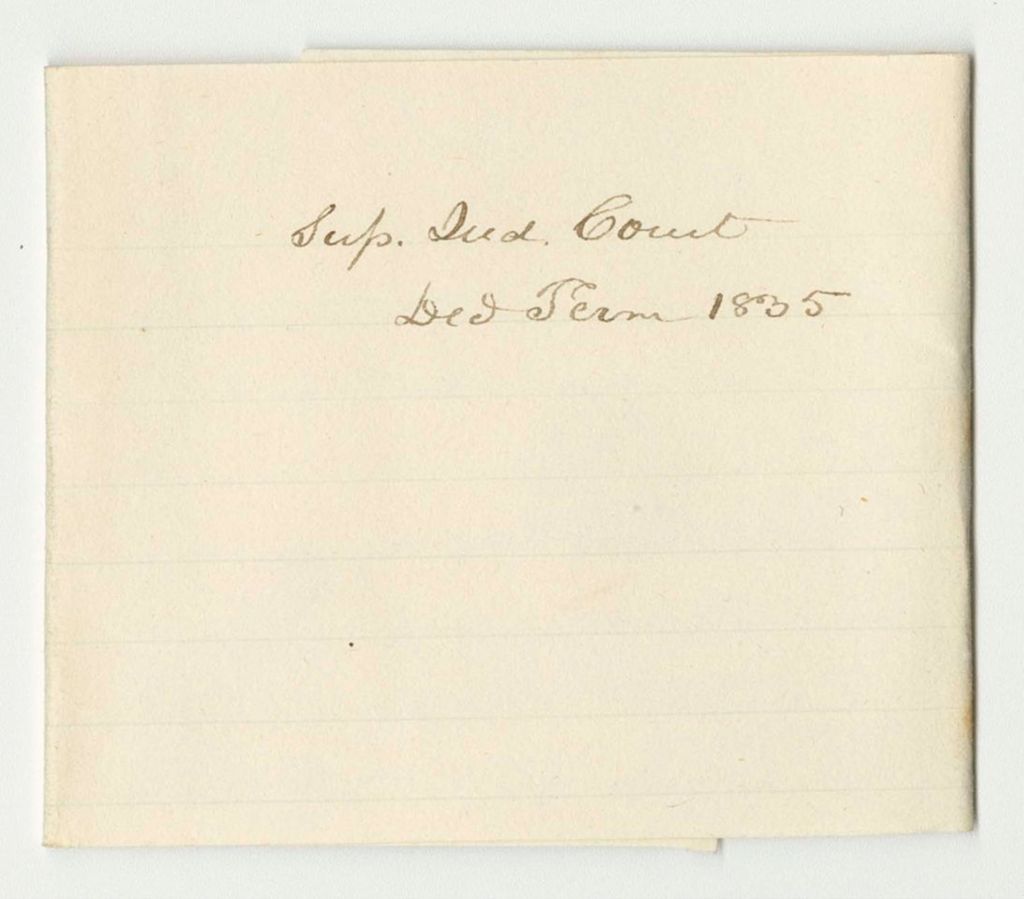 Sup. Jud. Court
Dec Term 1835